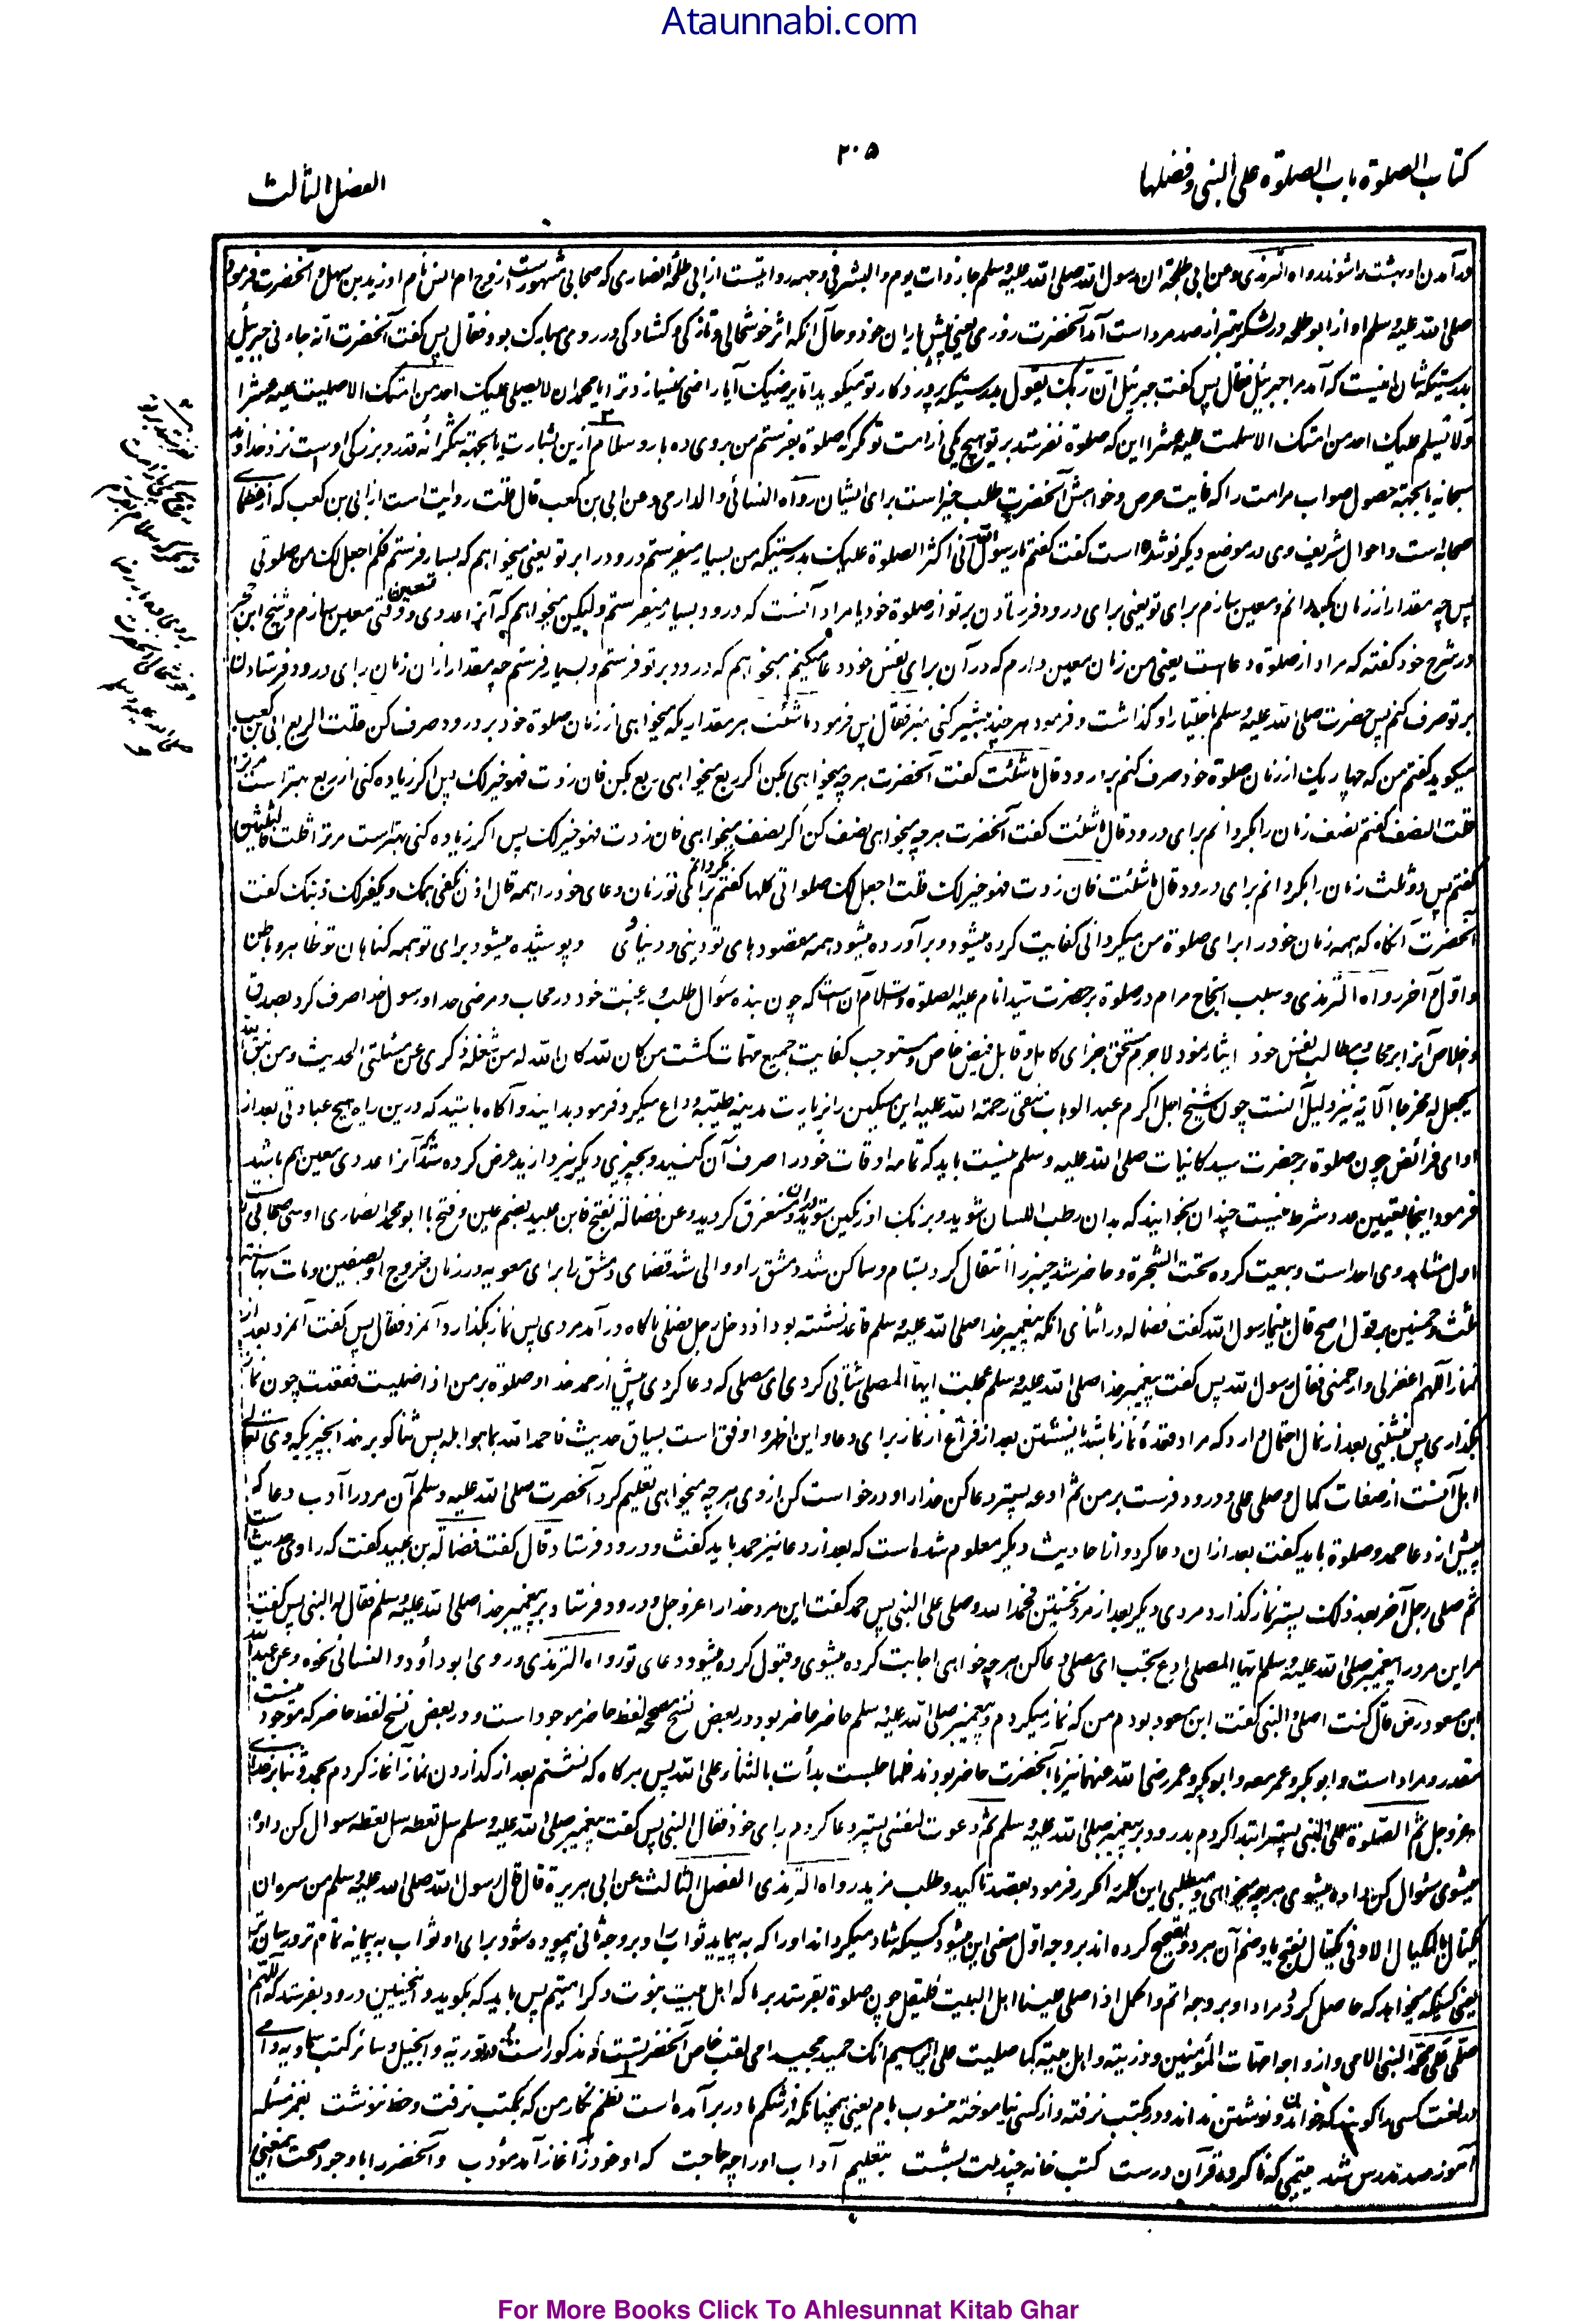 Ataunnabi.com
کتاب الصلوة باب الصلوة علی النبی وفضلها
۲۰۵
الفصل الثالث
درآمدن او بهشت را شوند رواه الترمذی وعن ابی طلحة ان رسول الله صلی الله علیه وسلم جاء ذات یوم والبشر فی وجهه روایتست از ابی طلحه انصاری که صحابی مشهورست زوج ام انس نام او زید بن سهل و آنحضرت فرمود
صلی الله علیه وسلم آواز ابو طلحه در لشکر بهتر از صد مرد است آمد آنحضرت روزی یعنی پیش یاران خود و حال آنکه اثر خوشحالی و تازگی و کشادگی در روی مبارک بود فقال پس گفت آنحضرت انه جاءنی جبرئیل
بدرستیکه شان اینست که آمد مرا جبرئیل فقال پس گفت جبرئیل ان ربک یقول بدرستیکه پروردگار تو میگوید اما یرضیک آیا راضی نمیسازد ترا یا محمد ان لا یصلی علیک احد من امتک الا صلیت علیه عشرا
ولا یسلم علیک احد من امتک الا سلمت علیه عشرا این که صلوة نفرستد بر تو هیچ یکی از امت تو مگر آنکه صلوة بفرستم من بروی ده بار و سلام
سبحانه یا بجهة حصول صواب مر امت را که غایت حرص و خواهش آنحضرت طلب خیر است برای ایشان رواه النسائی والدارمی وعن ابی بن کعب قال قلت روایت است از ابی بن کعب که از عظمای
صحابه است و احوال شریف وی در موضع دیگر نوشته شده است گفت گفتم یا رسول الله انی اکثر الصلوة علیک بدرستیکه من بسیار میفرستم درود را بر تو یعنی میخواهم که بسیار فرستم فکم اجعل لک من صلوتی
پس چه مقدار از زمان بگردانم و معین سازم برای تو یعنی برای درود فرستادن بر تو از صلوة خود یا مراد آنست که درود بسیار میفرستم ولیکن میخواهم که آنرا عددی و وقتی معین سازم و شیخ ابن حجر
در شرح خود گفته که مراد از صلوة دعاست یعنی من زمان معین دارم که در آن برای نفس خود دعا میکنم میخواهم که درود بر تو فرستم و بسیار فرستم چه مقدار از آن زمان برای درود فرستادن
بر تو صرف کنم پس حضرت صلی الله علیه وسلم باختیار او گذاشت و فرمود فقال پس فرمود ما شئت هر مقدار یکه میخواهی از زمان صلوة خود بر درود صرف کن قلت الربع ابی بن کعب
میگوید گفتم من که چهار یک از زمان صلوة خود صرف کنم بر درود قال ما شئت گفت آنحضرت هر چه میخواهی بکن اگر ربع میخواهی ربع بکن فان زدت فهو خیر لک پس اگر زیاده کنی از ربع بهتر است
قلت النصف گفتم نصف زمان را بگردانم برای درود قال ما شئت گفت آنحضرت هر چه میخواهی نصف کن اگر نصف میخواهی فان زدت فهو خیر لک پس اگر زیاده کنی بهتر است مر ترا قلت فالثلثین
گفتم پس دو ثلث زمان را بگردانم برای درود قال ما شئت فان زدت فهو خیر لک قلت اجعل لک صلواتی کلها گفتم بگردانم برای تو زمان دعای خود را همه قال اذن تکفی همک ویکفر لک ذنبک گفت
آنحضرت آنگاه که همه زمان خود را برای صلوة من میگردانی کفایت کرده میشود و برآورده میشود همه مقصودهای تو دینی و دنیاوی و پوشیده میشود برای تو همه گناهان تو ظاهر و باطن
و اول و آخر رواه الترمذی و سبب انجاح مرام در صلوة بر حضرت سید انام علیه الصلوة والسلام آن است که چون بنده سوال طلب و رغبت خود در محاب و مرضی خدا و رسول خدا صرف کرد بصدق
و اخلاص آنرا بر محاب و مطالب نفس خود ایثار نمود لاجرم مستحق جزای کامل و قابل فیض خاص و مستوجب کفایت جمیع مهمات گشت من کان لله کان الله له من شغله ذکری عن مسئلتی الحدیث ومن یتق الله
یجعل له مخرجا الآیة نیز دلیل آنست چون شیخ اجل اکرم عبد الوهاب متقی رحمة الله علیه این مسکین را بزیارت مدینه طیبه وداع میکرد فرمود بدانید و آگاه باشید که درین راه هیچ عبادتی بعد از
ادای فرائض چون صلوة بر حضرت سید کائنات صلی الله علیه وسلم نیست باید که تمامه اوقات خود را صرف آن کنید و بچیزی دیگر نپردازید عرض کرده شد که آنرا عددی معین هم باشد
فرمود اینجا تعیین عدد شرط نیست چندان بخوانید که بدان رطب اللسان شوید و برنگ او رنگین شوید و دران مستغرق گردید وعن فضالة بفتح فا بن عبید بضم عین و فتح با ابو محمد انصاری اوسی صحابی
اول مشاهد وی احد است و بیعت کرده تحت الشجرة و حاضر شد خیبر را انتقال کرد بشام و ساکن شد دمشق را و والی شد قضای دمشق را برای معویه در زمان خروج او بصفین ومات بها سنة
ثلث وخمسین بر قول اصح قال بینما رسول الله گفت فضاله در اثنای آنکه پیغمبر خدا صلی الله علیه وسلم قاعد نشسته بود اذ دخل رجل فصلی ناگاه درآمد مردی پس نماز بگذارد آنمرد فقال پس گفت آنمرد بعد از
نماز اللهم اغفر لی وارحمنی فقال رسول الله پس گفت پیغمبر خدا صلی الله علیه وسلم عجلت ایها المصلی شتابی کردی ای مصلی که دعا کردی پیش از حمد خدا و صلوة بر من اذا صلیت فقعدت چون نماز
بگذاری پس بنشینی بعد از نماز احتمال دارد که مراد قعدهٔ نماز باشد یا نشستن بعد از فراغ از نماز برای دعا و این اظهر و اوفق است بسیاق حدیث فاحمد الله بما هو اهله پس ثنا گو بر خدا بچیزیکه وی تعالی
اهل آنست از صفات کمال وصل علی و درود فرست بر من ثم ادعه پستر دعا کن خدا را و درخواست کن از وی هر چه میخواهی تعلیم کرد آنحضرت صلی الله علیه وسلم آن مرد را آداب دعا که
پیش از دعا حمد و صلوة باید گفت بعد از ان دعا کرد و از احادیث دیگر معلوم شده است که بعد از دعا نیز حمد باید گفت و درود فرستاد قال گفت فضالة بن عبید گفت که راوی حدیث است
ثم صلی رجل آخر بعد ذلک پستر نماز گذارد مردی دیگر بعد از مرد نخستین فحمد الله وصلی علی النبی پس حمد گفت این مرد خدا را عزوجل و درود فرستاد بر پیغمبر خدا صلی الله علیه وسلم فقال له النبی پس گفت
مر این مرد را پیغمبر صلی الله علیه وسلم ایها المصلی ادع تجب ای مصلی دعا کن هر چه خواهی اجابت کرده میشوی و قبول کرده میشود دعای تو رواه الترمذی وروی ابو داؤد والنسائی نحوه وعن عبد الله
ابن مسعود رض قال کنت اصلی والنبی گفت ابن مسعود بودم من که نماز میکردم و پیغمبر صلی الله علیه وسلم حاضر حاضر بود در بعض نسخ مصححه لفظ حاضر موجود است و در بعض نسخ لفظ حاضر که موجود نیست
مقدر و مراد است وابو بکر وعمر معه و ابو بکر و عمر رضی الله عنهما نیز با آنحضرت حاضر بودند فلما جلست بدأت بالثناء علی الله پس هر گاه که نشستم بعد از گذاردن نماز آغاز کردم بحمد و ثنا بر خدای
عزوجل ثم الصلوة علی النبی پستر ابتدا کردم بدرود بر پیغمبر صلی الله علیه وسلم ثم دعوت لنفسی پستر دعا کردم برای خود فقال النبی پس گفت پیغمبر صلی الله علیه وسلم سل تعطه سل تعطه سوال کن داده
میشوی سئوال کن داده میشوی هر چه میخواهی و میطلبی این کلمه را مکرر فرمود بقصد تاکید و طلب مزید رواه الترمذی الفصل الثالث عن ابی هریرة قال قال رسول الله صلی الله علیه وسلم من سره ان
یکتال بالمکیال الاوفی یکتال بفتح یا و ضم آن هر دو تصحیح کرده اند بر وجه اول معنی این میشود کسیکه شاد میگرداند او را که به پیماید ثواب را و بر وجه ثانی پیموده شود برای او ثواب به پیمانه تمام تر
یعنی کسیکه میخواهد که حاصل گردد مراد او بر وجه اتم و اکمل اذا صلی علینا اهل البیت فلیقل چون صلوة بفرستد بر ما که اهل بیت نبوت و کرامتیم پس باید که بگوید و اینچنین درود بفرستد که اللهم
صل علی محمد النبی الامی وازواجه امهات المؤمنین وذریته واهل بیته کما صلیت علی ابراهیم انک حمید مجید امی لقب خاص آنحضرتست که مذکور است در توریة و انجیل و سائر کتب سماویه و امی
در لغت کسی را گویند که خواندن و نوشتن نداند و در مکتب نرفته و از کسی نیاموخته منسوب بام یعنی همچنانکه از شکم مادر برآمده است نظم نگار من که بمکتب نرفت و خط ننوشت بغمزه مسئله
آموز صد مدرس شد یتیمی که ناکرده قرآن درست کتب خانه چند ملت بشست بتعلیم آداب او را چه حاجت که او خود ز آغاز آمد مؤدب و آنحضرت را با وجود صحت معنی
For More Books Click To Ahlesunnat Kitab Ghar